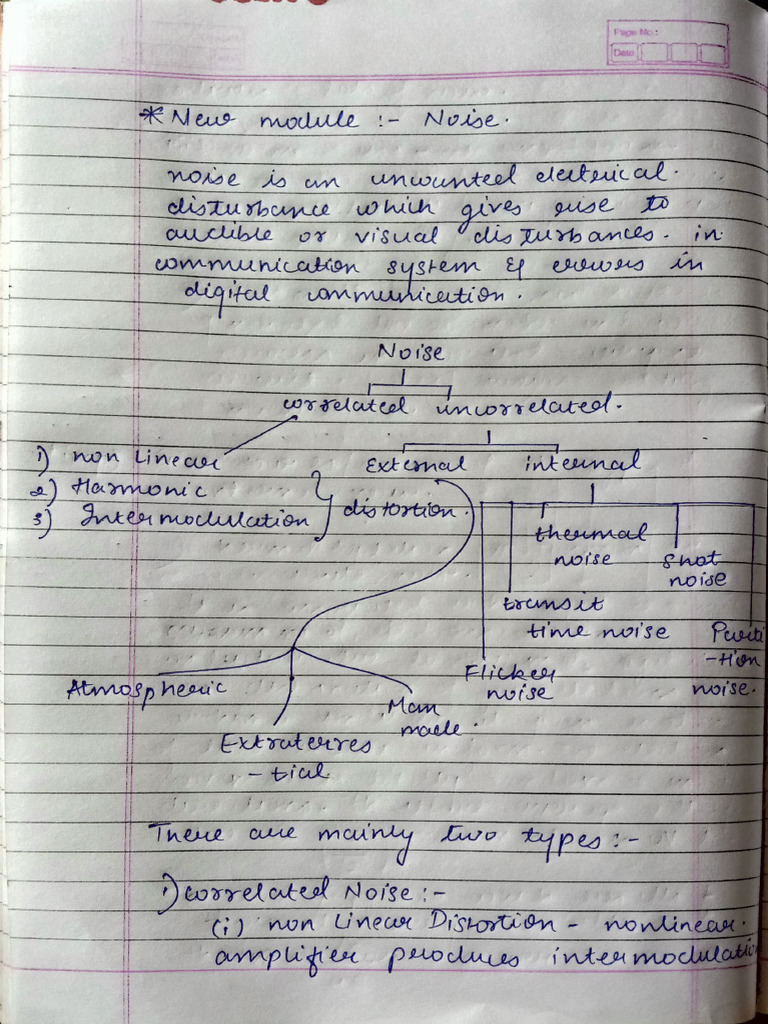 Page No :
Date
* New module :- Noise.
noise is an unwanted electrical.
disturbance which gives rise to
audible or visual disturbances. in
communication system & errors in
digital communication.
Noise
correlated uncorrelated.
1) non Linear External internal
2) Harmonic
3) Intermodulation } distortion.
thermal
noise
shot
noise
transit
time noise
Parti
-tion
noise.
Flicker
noise
Atmospheric
Man
made.
Extraterres
-tial
There are mainly two types :-
1) correlated Noise :-
(i) non Linear Distortion - nonlinear.
amplifier produces intermodulation